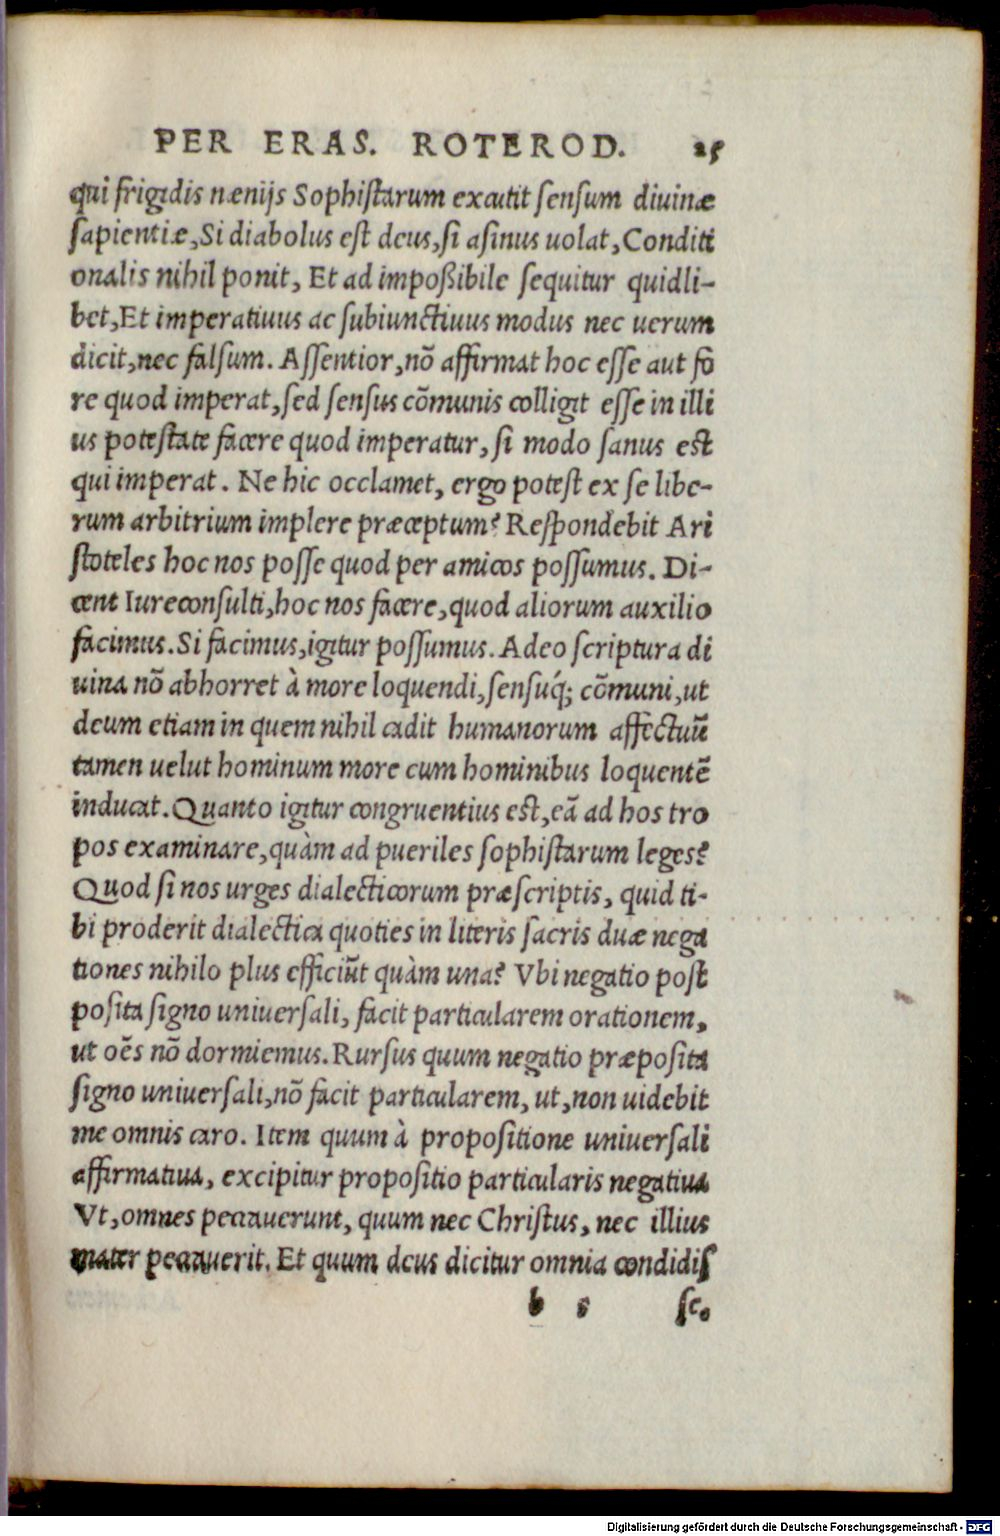 PER ERAS. ROTEROD. 25
qui frigidis næniis Sophistarum excutit sensum diuinæ
sapientiæ, Si diabolus est deus, si asinus uolat, Conditi
onalis nihil ponit, Et ad impoßibile sequitur quidli-
bet, Et imperatiuus ac subiunctiuus modus nec uerum
dicit, nec falsum. Assentior, nõ affirmat hoc esse aut fo
re quod imperat, sed sensus cõmunis colligit esse in illi
us potestate facere quod imperatur, si modo sanus est
qui imperat. Ne hic occlamet, ergo potest ex se libe-
rum arbitrium implere præceptum? Respondebit Ari
stoteles hoc nos posse quod per amicos possumus. Di-
cent Iureconsulti, hoc nos facere, quod aliorum auxilio
facimus. Si facimus, igitur possumus. Adeo scriptura di
uina nõ abhorret à more loquendi, sensuq́; cõmuni, ut
deum etiam in quem nihil cadit humanorum affectuũ
tamen uelut hominum more cum hominibus loquentẽ
inducat. Quanto igitur congruentius est, eã ad hos tro
pos examinare, quàm ad pueriles sophistarum leges?
Quod si nos urges dialecticorum præscriptis, quid ti-
bi proderit dialectica quoties in literis sacris duæ nega
tiones nihilo plus efficiũt quàm una? Vbi negatio post
posita signo uniuersali, facit particularem orationem,
ut oẽs nõ dormiemus. Rursus quum negatio præposita
signo uniuersali, nõ facit particularem, ut, non uidebit
me omnis caro. Item quum à propositione uniuersali
affirmatiua, excipitur propositio particularis negatiua
Vt, omnes peccauerunt, quum nec Christus, nec illius
mater peccauerit. Et quum deus dicitur omnia condidis
b 5 se,
Digitalisierung gefördert durch die Deutsche Forschungsgemeinschaft - DFG